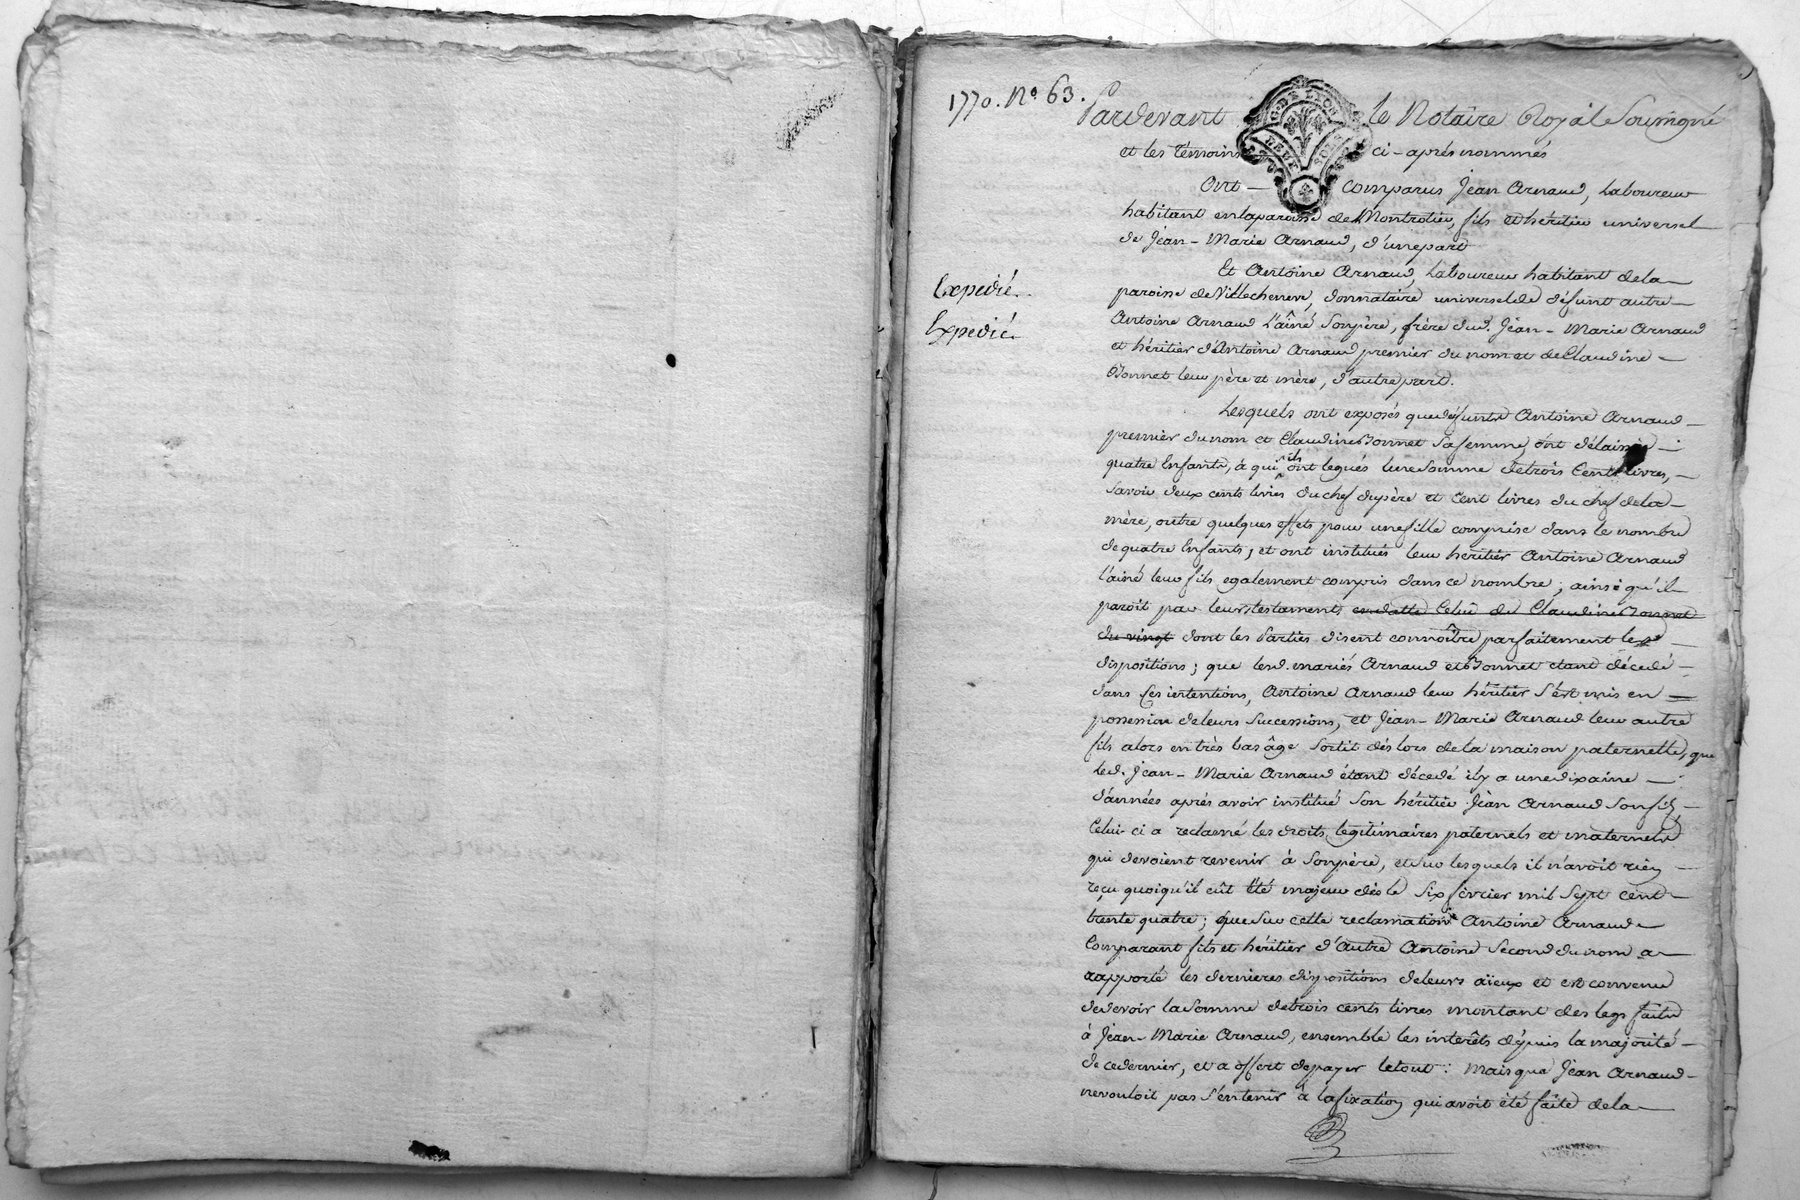 1770. N° 63.
Pardevant le Notaire Royal Soussigné
G. DE LYON
NEUF SOLS
et les témoins ci-aprés nommés
Ont — comparus Jean Arnaud, Laboureur
habitant en la paroisse de Montrotier, fils et héritier universel
de Jean-Marie Arnaud, d'une part
Et Antoine Arnaud, Laboureur habitant de la
Expedié.
paroisse de Villechenève, donnataire universel de défunt autre
Expedié
Antoine Arnaud l'aîné Son père, frère dud. Jean-Marie Arnaud
et héritier d'Antoine Arnaud premier du nom et de Claudine
Bonnet leur père et mère, d'autre part.
Lesquels ont exposés que défunts Antoine Arnaud
premier du nom et Claudine Bonnet Sa femme, ont délaissés
quatre Enfants, à qui ils ont legués une Somme de trois Cents livres,
Savoir deux cents livres du chef du père et Cent livres du chef de la
mère, outre quelques effets pour une fille comprise dans le nombre
de quatre Enfants; et ont institués leur héritier Antoine Arnaud
l'ainé leur fils egalement compris dans ce nombre; ainsi qu'il
paroit par leurs testaments en datte Celui de Claudine Bonnet
du vingt dont les Parties disent connoître parfaitement les
dispositions; que lesd. mariés Arnaud et Bonnet etant décedé
dans Ses intentions, Antoine Arnaud leur héritier s'est mis en
possession de leurs Successions, et Jean-Marie Arnaud leur autre
fils alors en très bas âge Sortit dès lors de la maison paternelle, que
led. Jean-Marie Arnaud étant décedé il y a une dixaine
d'années aprés avoir institué Son héritier Jean Arnaud Son fils
Celui-ci a reclamé les droits legitimaires paternels et maternels
qui devoient revenir à Son père, et Sur lesquels il n'avoit rien
reçu quoiqu'il eût été majeur dés le Six février mil Sept cent
trente quatre; que Sur cette reclamation Antoine Arnaud
Comparant fils et héritier d'Autre Antoine Second du nom a
rapporté les dernieres dispositions de leurs aïeux et est convenu
de devoir la Somme de trois cents livres montant des legs faits
à Jean-Marie Arnaud, ensemble les interêts dépuis la majorité
de ce dernier, et a offert de payer le tout: mais que Jean Arnaud
ne vouloit pas S'entenir à la fixation qui avoit été faite de la